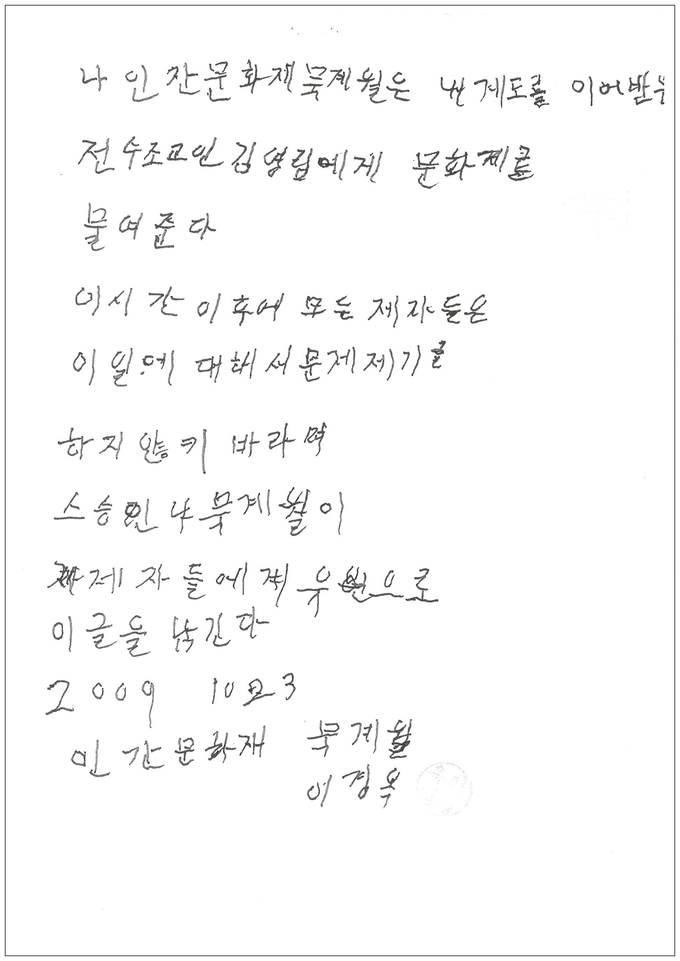 나 인간문화재묵계월은 내 계도를 이어받는
전수조교인 김영림에게 문화제를
물여준다
이시간 이후에 모든 제자들은
이 일에 대해서 문제제기를
하지 않키 바라며
스승인 나 묵계월이
제자들에게 유언으로
이 글을 남긴다
2009 10 3
인간문화재 묵계월
이경옥